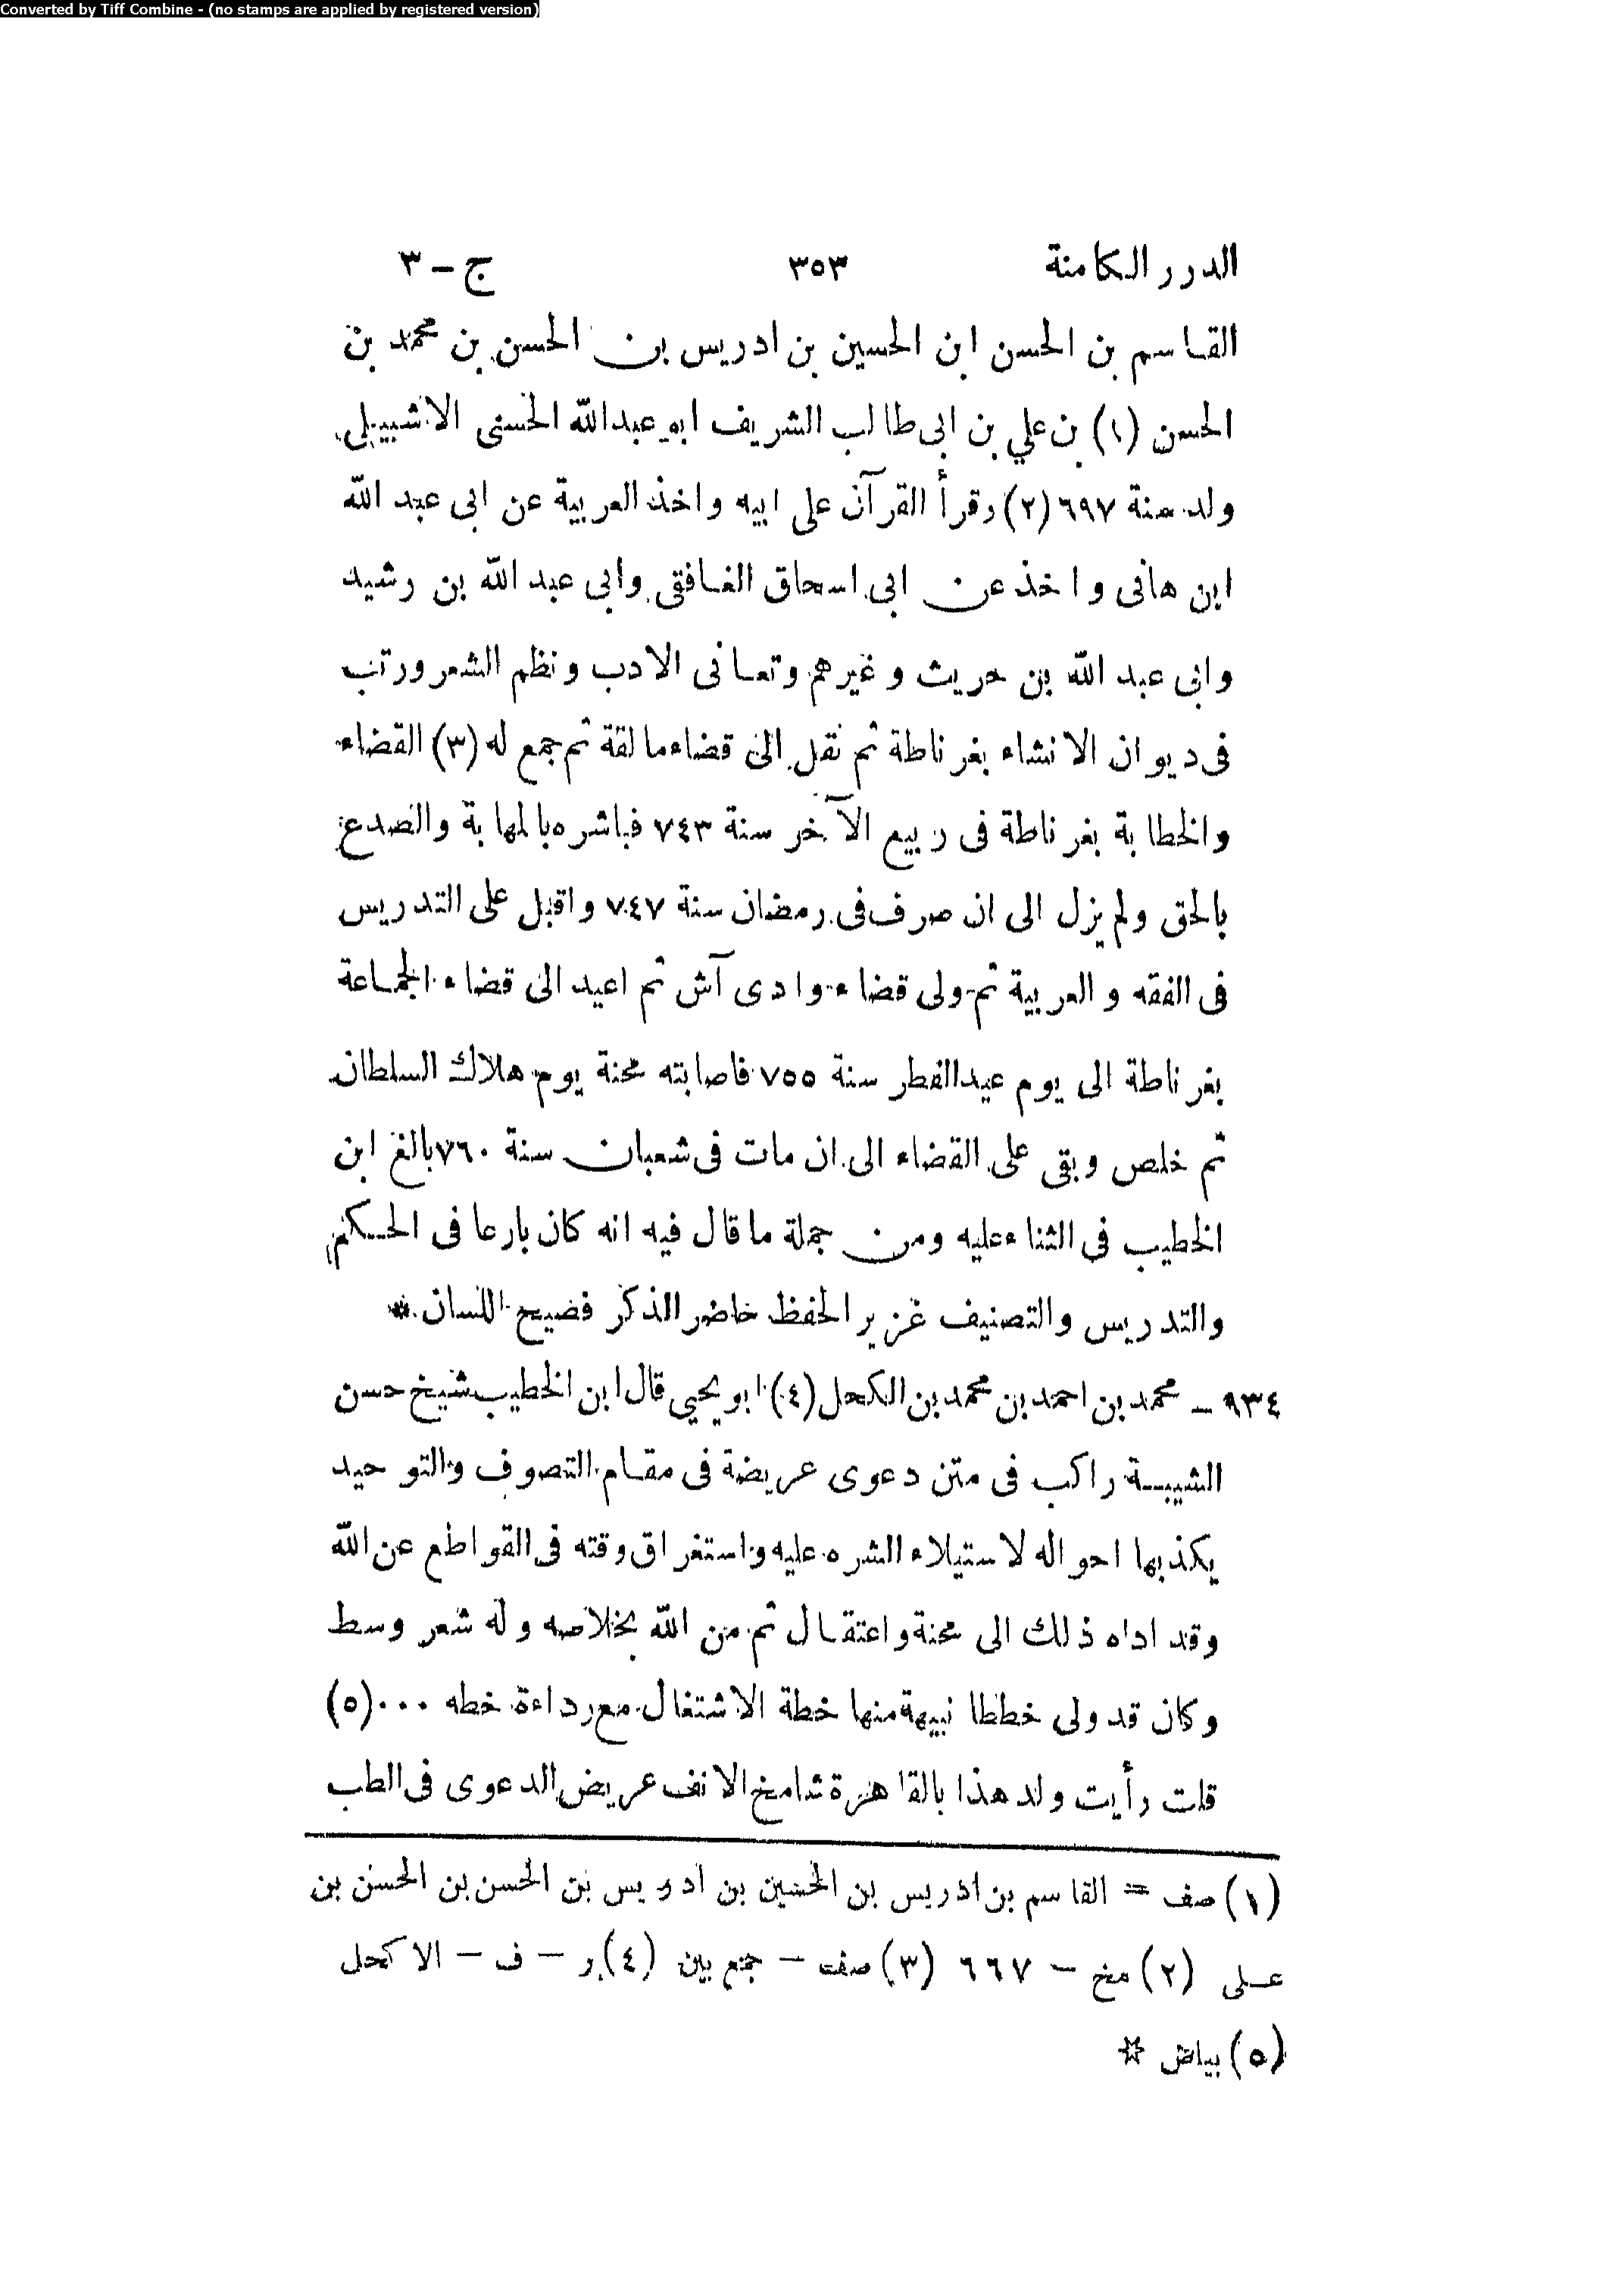 Converted by Tiff Combine - (no stamps are applied by registered version)
الدرر الكامنة ٣٥٣ ج - ٣
القاسم بن الحسن ابن الحسين بن ادريس بن الحسن بن محمد بن
الحسن (١) بن علي بن ابى طالب الشريف ابو عبدالله الحسنى الاشبيلى
ولد سنة ٦٩٧ (٢) وقرأ القرآن على ابيه واخذ العربية عن ابى عبد الله
ابن هانى واخذ عن ابى اسحاق الغافقى وابى عبد الله بن رشيد
وابى عبد الله بن حريث وغيرهم وتعانى الادب ونظم الشعر ورتب
فى ديوان الانشاء بغرناطة ثم نقل الى قضاء مالقة ثم جمع له (٣) القضاء
والخطابة بغرناطة فى ربيع الآخر سنة ٧٤٣ فباشره بالمهابة والصدع
بالحق ولم يزل الى ان صرف فى رمضان سنة ٧٤٧ واقبل على التدريس
فى الفقه والعربية ثم ولى قضاء وادى آش ثم اعيد الى قضاء الجماعة
بغرناطة الى يوم عيدالفطر سنة ٧٥٥ فاصابته محنة يوم هلاك السلطان
ثم خلص وبقى على القضاء الى ان مات فى شعبان سنة ٧٦٠ بالغ ابن
الخطيب فى الثناء عليه ومن جملة ما قال فيه انه كان بارعا فى الحكم
والتدريس والتصنيف غزير الحفظ حاضر الذكر فصيح اللسان *
٩٣٤ - محمد بن احمد بن محمد بن الكحل (٤) ابو يحيى قال ابن الخطيب شيخ حسن
الشيبة راكب فى متن دعوى عريضة فى مقام التصوف والتوحيد
يكذبها احواله لاستيلاء الشره عليه واستغراق وقته فى القواطع عن الله
وقد اداه ذلك الى محنة واعتقال ثم من الله بخلاصه وله شعر وسط
وكان قد ولى خططا نبيهة منها خطة الاشتغال مع رداءة خطه ٠٠٠ (٥)
قلت رأيت ولد هذا بالقاهرة شامخ الانف عريض الدعوى فى الطب
(١) صف = القاسم بن ادريس بن الحسين بن ادريس بن الحسن بن الحسن بن
على (٢) مخ - ٦٦٧ (٣) صف - جمع بين (٤) ر - ف - الاكحل
(٥) بياض *